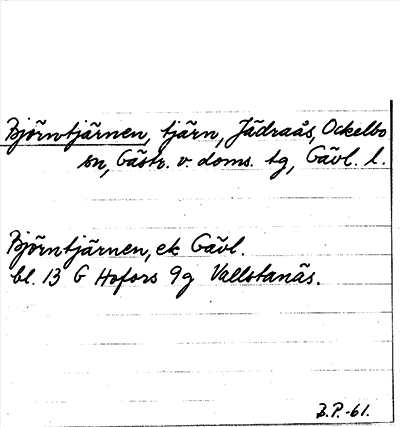 Björntjärnen, tjärn, Jädraås, Ockelbo
sn, Gästr. v. doms. tg, Gävl. l.
Björntjärnen, ek Gävl.
bl. 13 G Hofors 9g Vallstanäs.
B.P.-61.